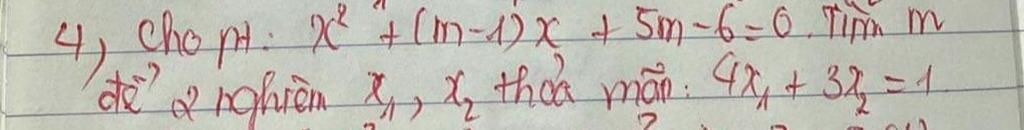 4, Cho pt: x² + (m-1)x + 5m - 6 = 0. Tìm m
để 2 nghiệm x₁, x₂ thoả mãn: 4x₁ + 3x₂ = 1